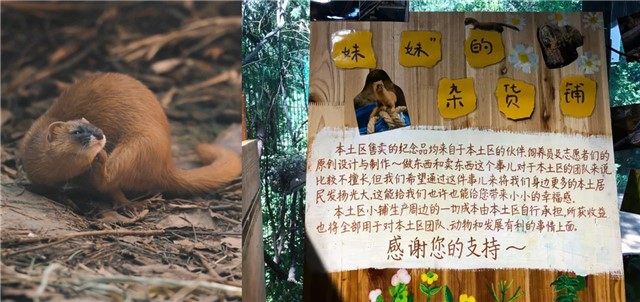 妹妹”的
杂货铺
本土区售卖的纪念品均来自于本土区的伙伴、饲养员及志愿者们的
原创设计与制作～做东西和卖东西这个事儿对于本土区的团队来说
比较不擅长,但我们希望通过这件事儿来将我们身边更多的本土居
民发扬光大,这能给我们也许也能给您带来小小的幸福感。
本土区小铺生产周边的一切成本由本土区自行承担,所获收益
也将全部用于对本土区团队、动物和发展有利的事情上面。
感谢您的支持～